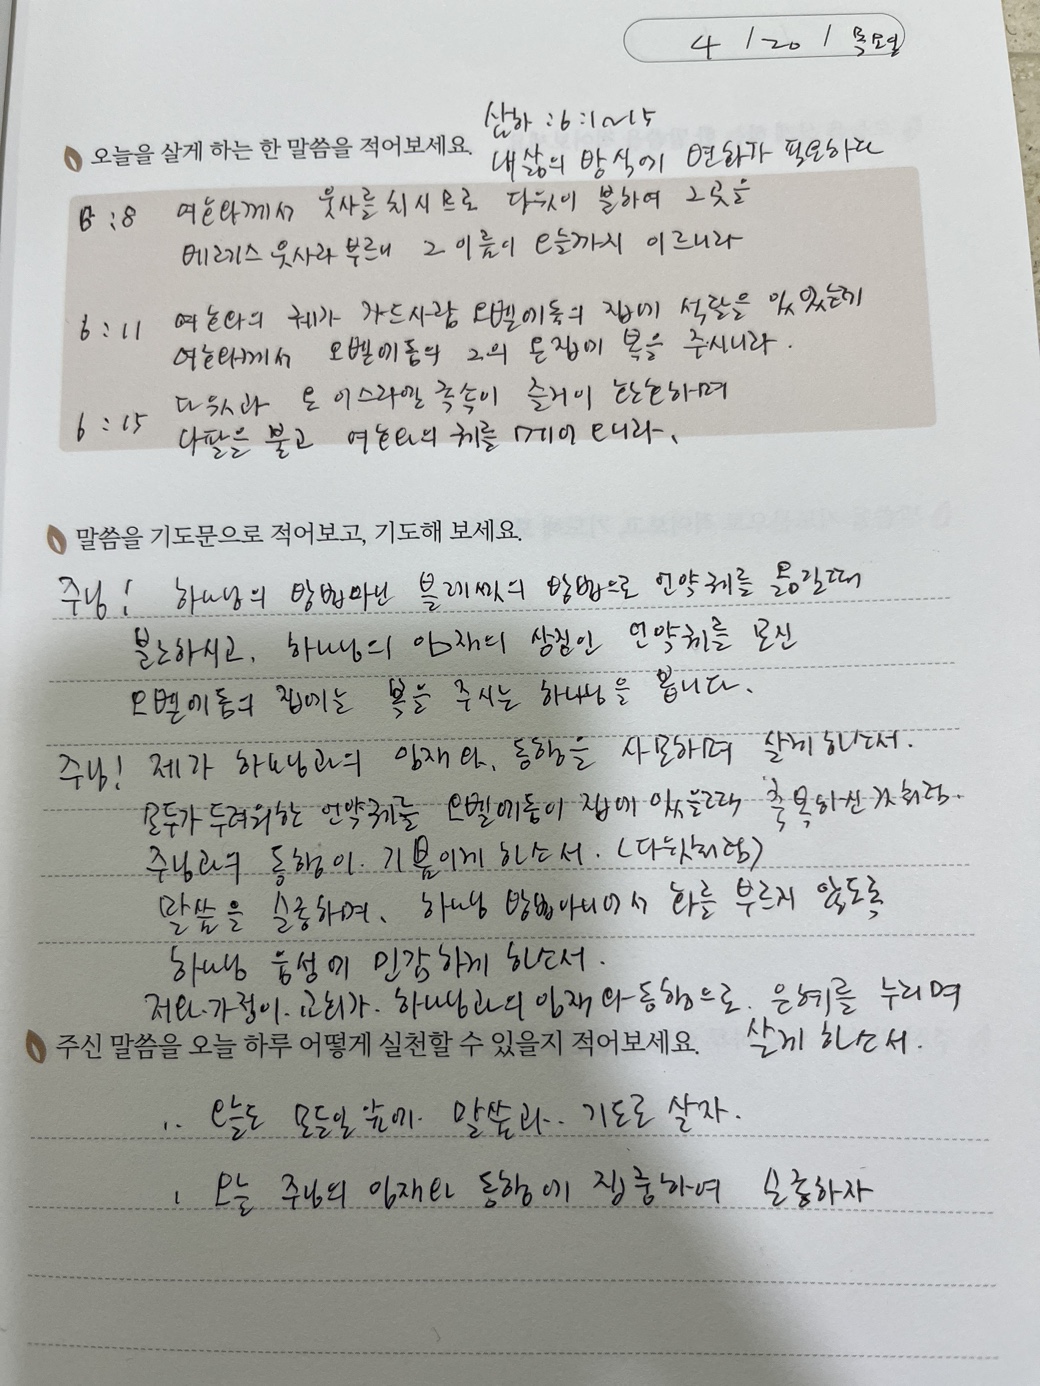 4 / 20 / 목요일
삼하 : 6 : 1~15
오늘을 살게 하는 한 말씀을 적어보세요.
내삶의 방식에 변화가 필요하다
6 : 8 여호와께서 웃사를 치시므로 다윗이 분하여 그곳을
베레스 웃사라 부르니 그 이름이 오늘까지 이르니라
6 : 11 여호와의 궤가 가드사람 오벧에돔의 집에 석달을 있었는데
여호와께서 오벧에돔의 그의 온집에 복을 주시니라.
6 : 15 다윗과 온 이스라엘 족속이 즐거이 환호하며
나팔을 불고 여호와의 궤를 메어 오니라.
말씀을 기도문으로 적어보고, 기도해 보세요.
주님! 하나님의 방법아닌 블레셋의 방법으로 언약궤를 옮길때
분노하시고, 하나님의 임재의 상징인 언약궤를 모신
오벧에돔의 집에는 복을 주시는 하나님을 봅니다.
주님! 제가 하나님과의 임재와, 동행을 사모하며 살게 하소서.
모두가 두려워한 언약궤를 오벧에돔이 집에 있을때 축복하신것처럼.
주님과의 동행이. 기쁨이게 하소서. (다윗처럼)
말씀을 실중하며, 하나님 방법아니어서 화를 부르지 않도록
하나님 음성에 민감하게 하소서.
저와.가정이.교회가. 하나님과의 임재와 동행으로. 은혜를 누리며
주신 말씀을 오늘 하루 어떻게 실천할 수 있을지 적어보세요.
살게 하소서.
오늘도 모든일 앞에. 말씀과.. 기도로 살자.
오늘 주님의 임재와 동행에 집중하여 실중하자